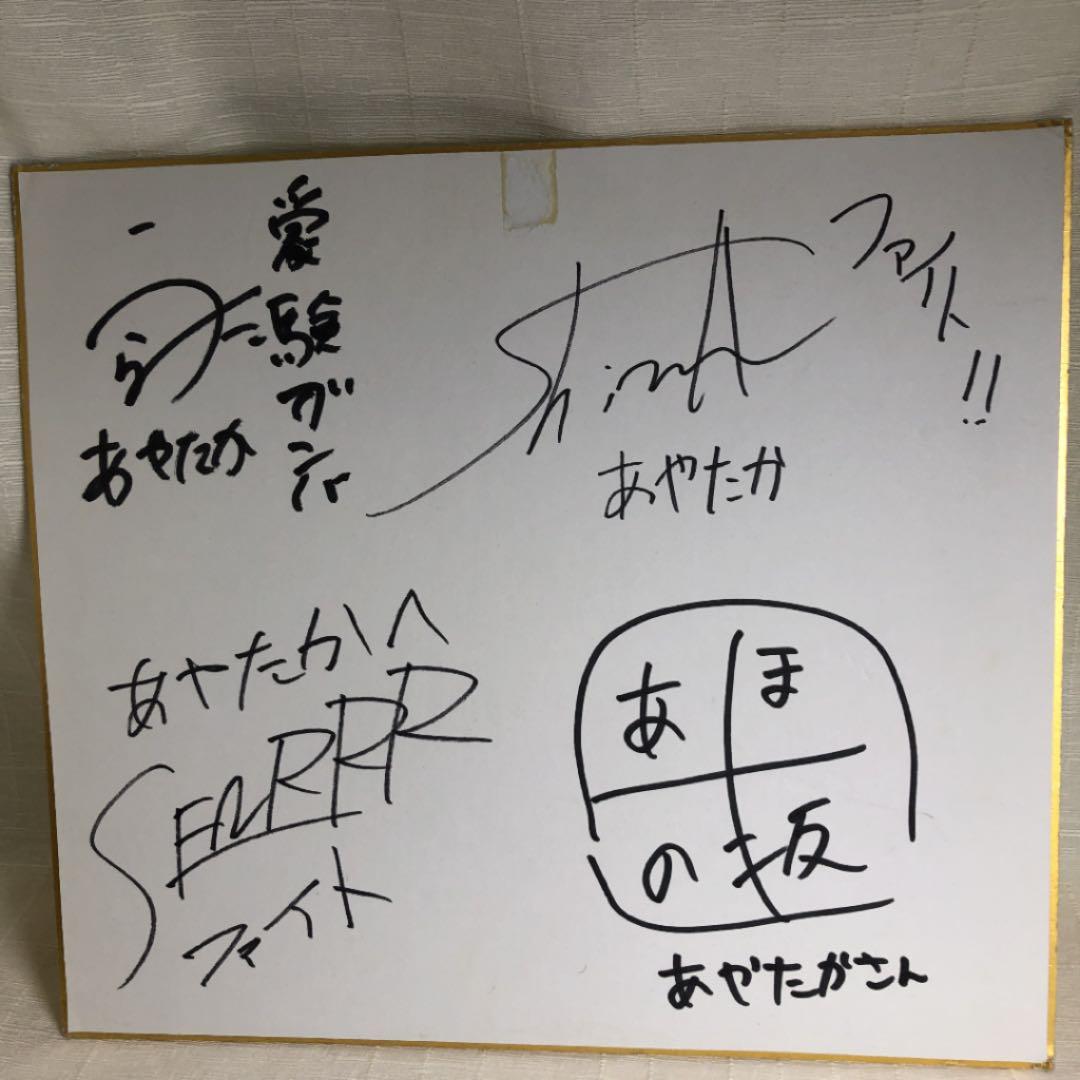 受験ガンバ
うらた
あやたか
ShimA
ファイト!!
あやたか
あやたかへ
SENRRR
ファイト
あほ
の坂
あやたかさん